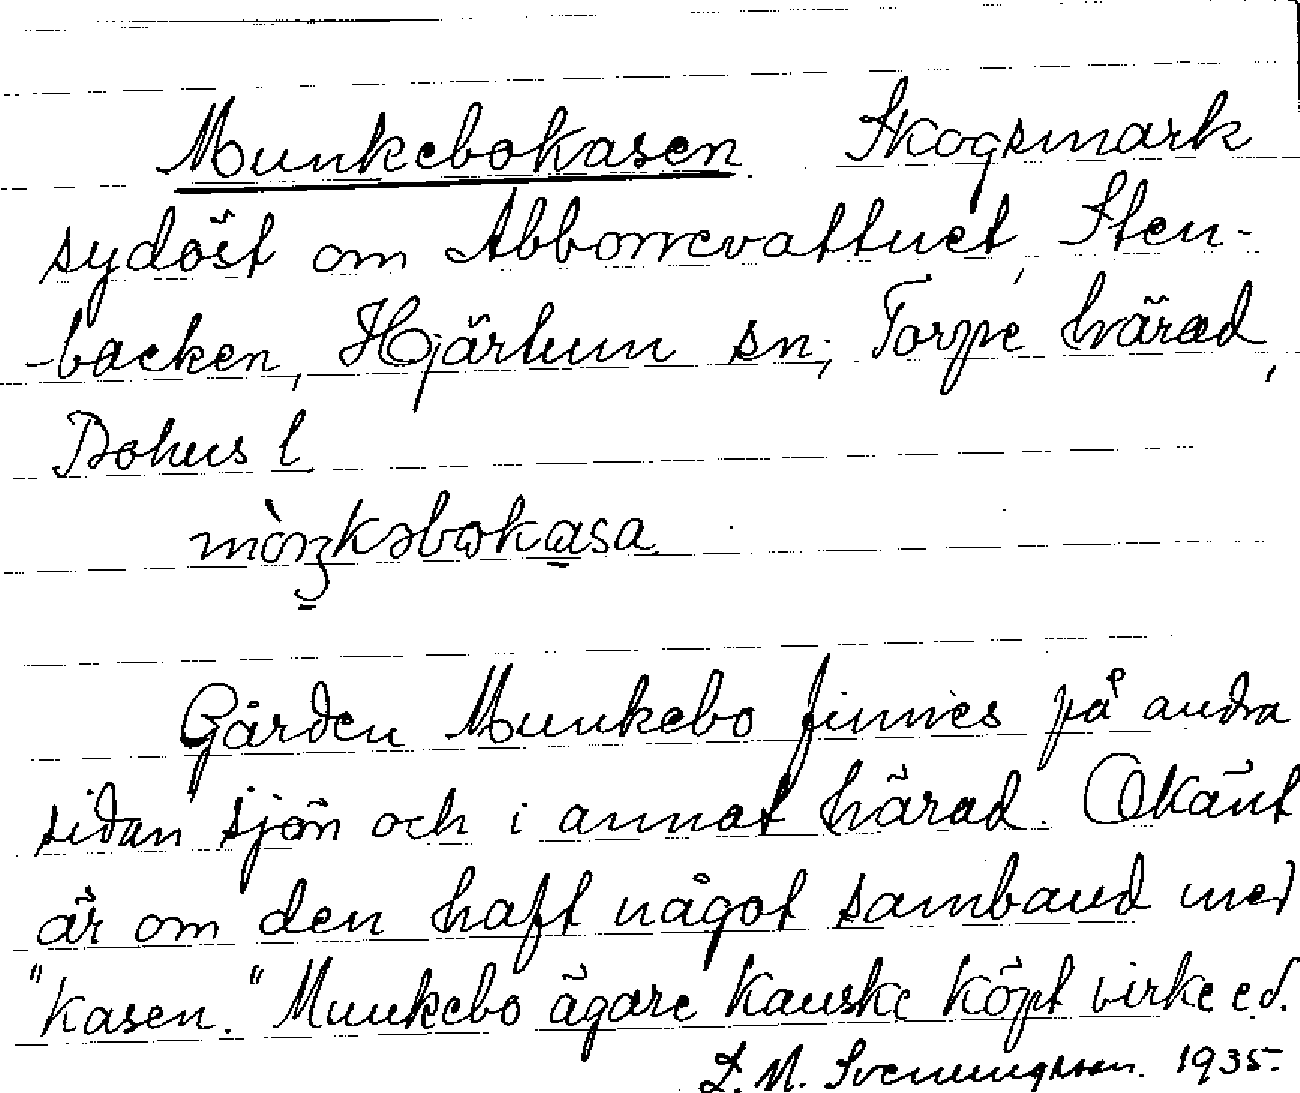 Munkebokasen Skogsmark
sydöst om Abborrevattnet, Sten-
backen, Hjärtum sn; Torpe härad,
Bohus l
mòŋkəbokasa
Gården Munkebo finnes på andra
sidan sjön och i annat härad. Okänt
är om den haft något samband med
"Kasen." Munkebo ägare kanske köpt virke ed.
L. M. Svenungsson. 1935.